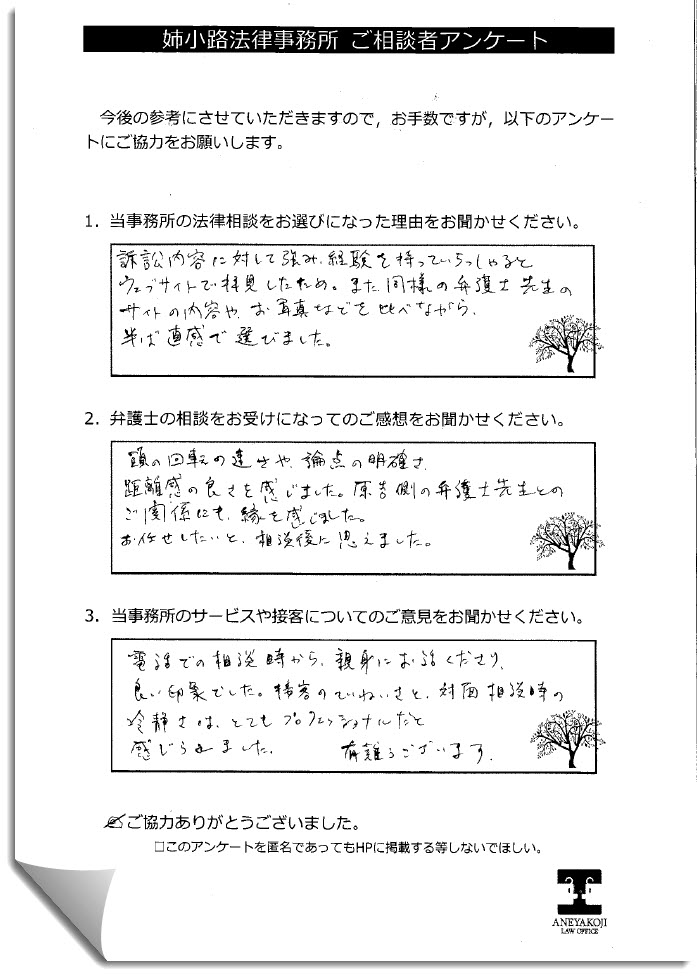 姉小路法律事務所 ご相談者アンケート
今後の参考にさせていただきますので，お手数ですが，以下のアンケー
トにご協力をお願いします。
1．当事務所の法律相談をお選びになった理由をお聞かせください。
訴訟内容に対して強み、経験を持っていらっしゃると
ウェブサイトで拝見したため。また、同様の弁護士先生の
サイトの内容や、お写真などを比べながら、
半ば直感で選びました。
2．弁護士の相談をお受けになってのご感想をお聞かせください。
頭の回転の速さや、論点の明確さ、
距離感の良さを感じました。原告側の弁護士先生との
ご関係にも、縁を感じました。
お任せしたいと、相談後に思えました。
3．当事務所のサービスや接客についてのご意見をお聞かせください。
電話での相談時から、親身にお話くださり、
良い印象でした。接客のていねいさと、対面相談時の
冷静さは、とてもプロフェッショナルだと
感じられました。 有難うございます。
✍ご協力ありがとうございました。
□このアンケートを匿名であってもHPに掲載する等しないでほしい。
ANEYAKOJI
LAW OFFICE